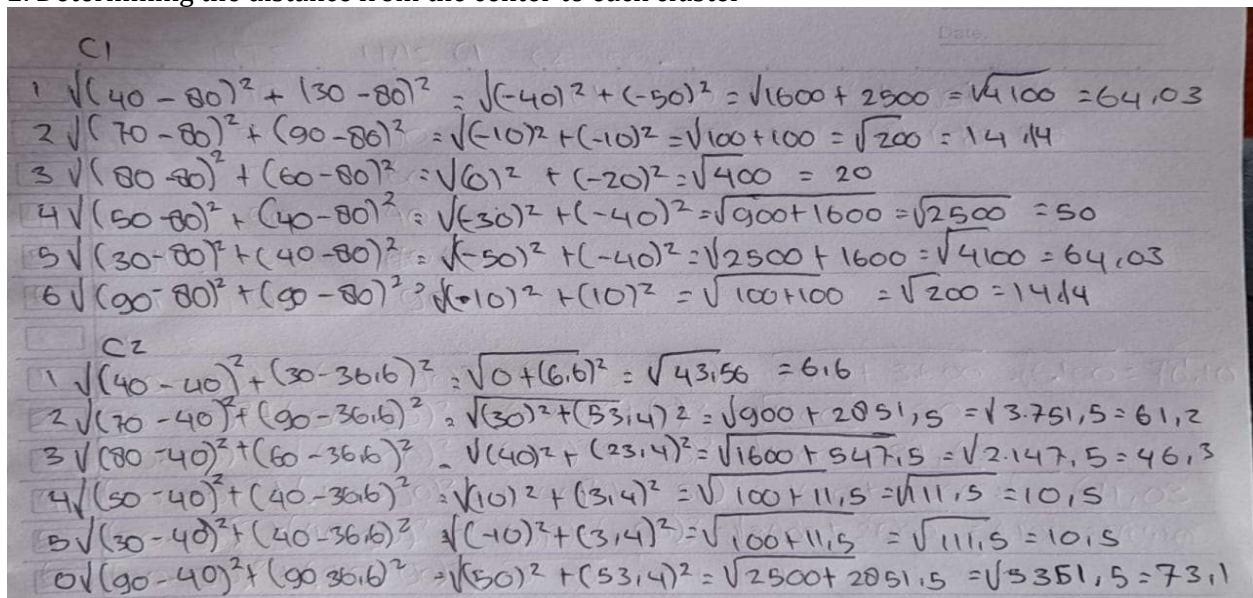 2. Determining the distance from the center to each cluster
Date.
C1
1 √(40 - 80)² + (30 - 80)² = √(-40)² + (-50)² = √1600 + 2500 = √4100 = 64,03
2 √(70 - 80)² + (90 - 80)² = √(-10)² + (-10)² = √100 + 100 = √200 = 14,14
3 √(80 - 80)² + (60 - 80)² = √(0)² + (-20)² = √400 = 20
4 √(50 - 80)² + (40 - 80)² = √(-30)² + (-40)² = √900 + 1600 = √2500 = 50
5 √(30 - 80)² + (40 - 80)² = √(-50)² + (-40)² = √2500 + 1600 = √4100 = 64,03
6 √(90 - 80)² + (90 - 80)² = √(-10)² + (10)² = √100 + 100 = √200 = 14,14
C2
1 √(40 - 40)² + (30 - 36,6)² = √0 + (6,6)² = √43,56 = 6,6
2 √(70 - 40)² + (90 - 36,6)² = √(30)² + (53,4)² = √900 + 2851,5 = √3.751,5 = 61,2
3 √(80 - 40)² + (60 - 36,6)² = √(40)² + (23,4)² = √1600 + 547,5 = √2.147,5 = 46,3
4 √(50 - 40)² + (40 - 36,6)² = √(10)² + (3,4)² = √100 + 11,5 = √111,5 = 10,5
5 √(30 - 40)² + (40 - 36,6)² √(-10)² + (3,4)² = √100 + 11,5 = √111,5 = 10,5
6 √(90 - 40)² + (90 36,6)² = √(50)² + (53,4)² = √2500 + 2851,5 = √5351,5 = 73,1